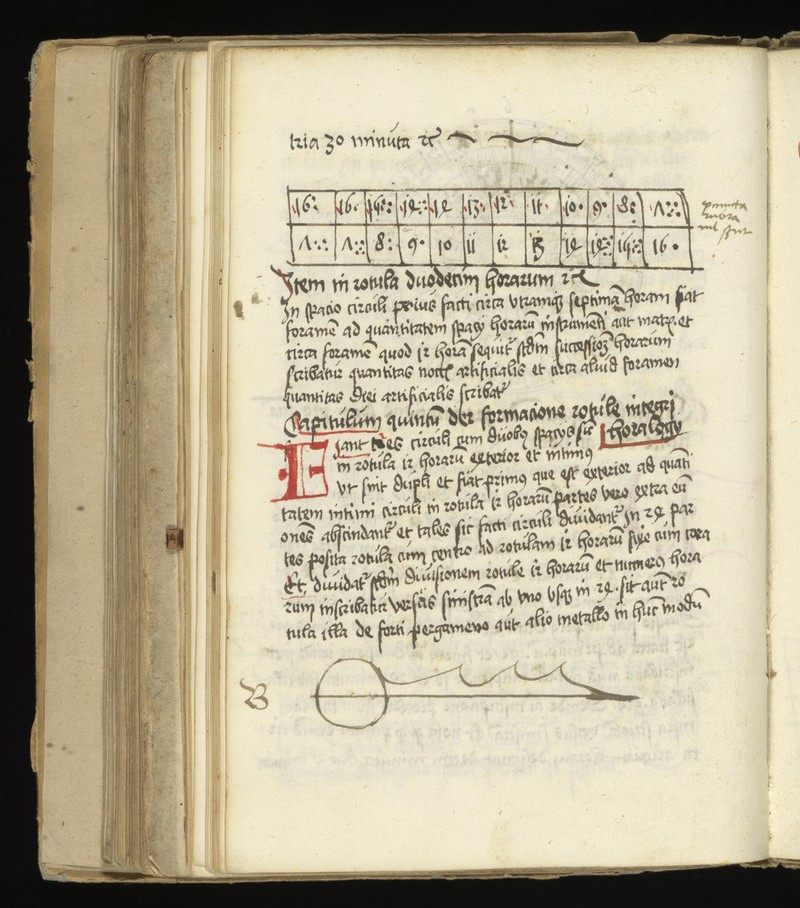 tria 30 minuta ꝛc̄
16 : 16 · 15 : 14 : 14 13 : 12 : 11 · 10 · 9 · 8 : ʌ :·:
ʌ :· ʌ :· 8 : 9 · 10 11 12 13 14 14 : 15 : 16 ·
puncta
rubra
nil
sunt
Item in rotula duodecim horarum ꝛc̄
In spacio circuli prius facti circa vtramqꝫ septimā horam fiat
foramē ad quantitatem spacij horarū instrumenti aut et
circa foramē quod 12 horā sequit᷑ scdm̄ successionē horarum
scribatur quantitas noct artificialis et circa aliud foramen
quantitas diei artificialis scribat᷑
Capitulum quintū der formacione rotule integri
horalogij
Fiant tres circuli cum duobꝫ spacijs
in rotula 12 horarū exterior et intimꝰ
vt sint dupli et fiat primꝰ que est exterior ad quāti
tatem intimi circuli in rotula 12 horarū partes vero extra eū
onēs abscindant᷑ et tales sic facti circuli diuidant᷑ In 24 par
tes posita rotula cum centro ad rotulam 12 horarū
Et diuidat᷑ scdm̄ diuisionem rotule 12 horarū et numerꝰ hora
rum inscribatur versus sinistrā ab vno vsqꝫ in 24 sit aūt ro
tula illa de forti pergameno aut alio metallo in hūc modū
B